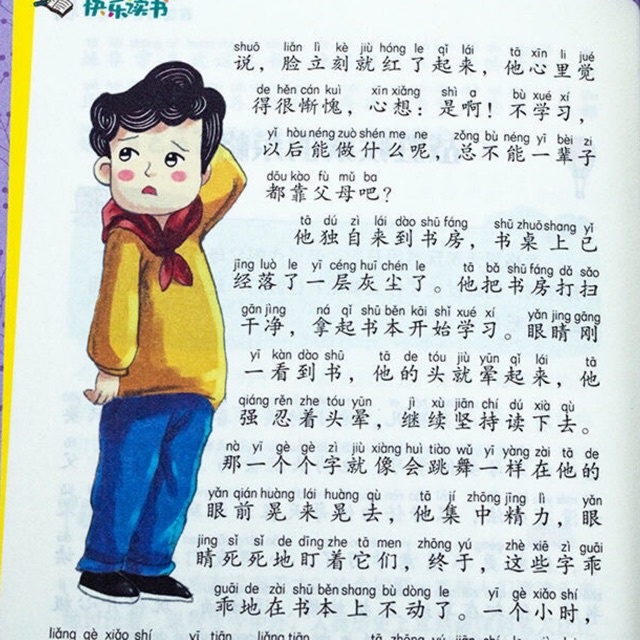 快乐读书
shuō liǎn lì kè jiù hóng le qǐ lái tā xīn li jué
说，脸立刻就红了起来，他心里觉
de hěn cán kuì xīn xiǎng shì a bù xué xí
得很惭愧，心想：是啊！不学习，
yǐ hòu néng zuò shén me ne zǒng bù néng yī bèi zi
以后能做什么呢，总不能一辈子
dōu kào fù mǔ ba
都靠父母吧？
tā dú zì lái dào shū fáng shū zhuō shang yǐ
他独自来到书房，书桌上已
jīng luò le yī céng huī chén le tā bǎ shū fáng dǎ sǎo
经落了一层灰尘了。他把书房打扫
gān jìng ná qǐ shū běn kāi shǐ xué xí yǎn jing gāng
干净，拿起书本开始学习。眼睛刚
yī kàn dào shū tā de tóu jiù yūn qǐ lái tā
一看到书，他的头就晕起来，他
qiáng rěn zhe tóu yūn jì xù jiān chí dú xià qù
强忍着头晕，继续坚持读下去。
nà yī gè gè zì jiù xiàng huì tiào wǔ yī yàng zài tā de
那一个个字就像会跳舞一样在他的
yǎn qián huàng lái huàng qù tā jí zhōng jīng lì yǎn
眼前晃来晃去，他集中精力，眼
jing sǐ sǐ de dīng zhe tā men zhōng yú zhè xiē zì guāi
睛死死地盯着它们，终于，这些字乖
guāi de zài shū běn shang bù dòng le yī gè xiǎo shí
乖地在书本上不动了。一个小时，
liǎng gè xiǎo shí yī tiān liǎng tiān